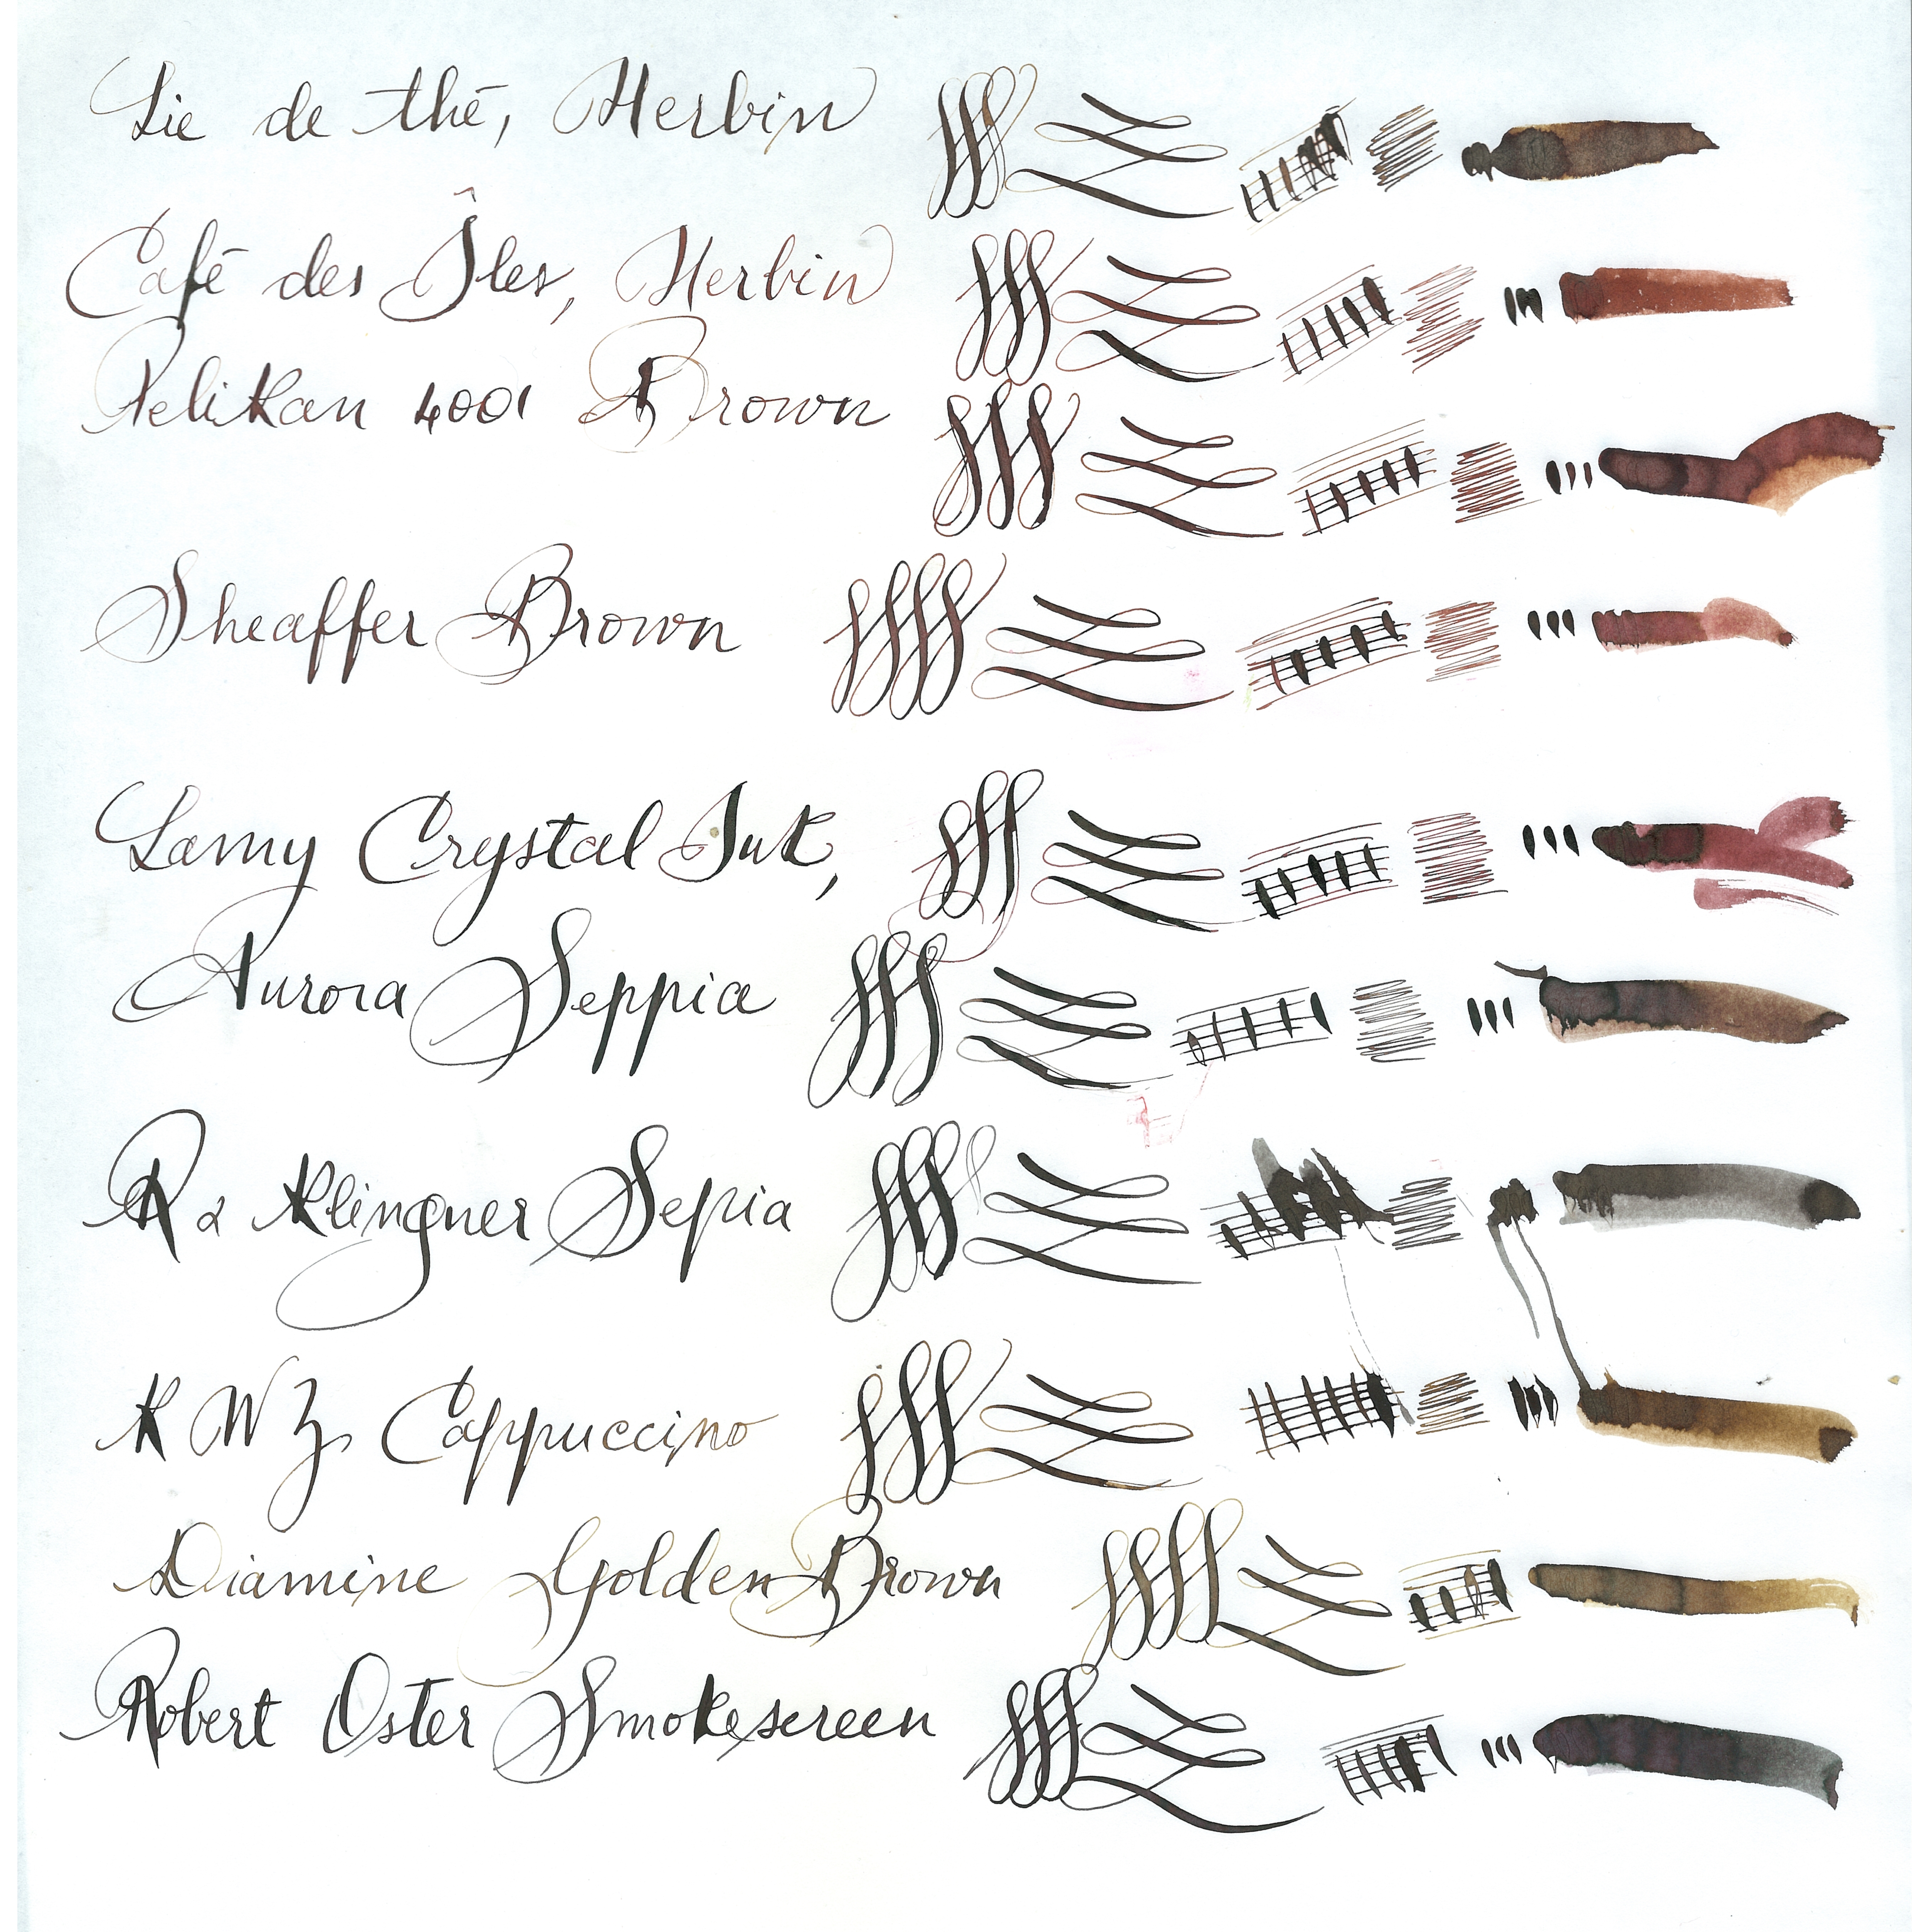 Lie de thé, Herbin
Café des Îles, Herbin
Pelikan 4001 Brown
Sheaffer Brown
Lamy Crystal Ink,
Aurora Seppia
R & Klingner Sepia
KWZ Cappuccino
Diamine Golden Brown
Robert Oster Smokescreen